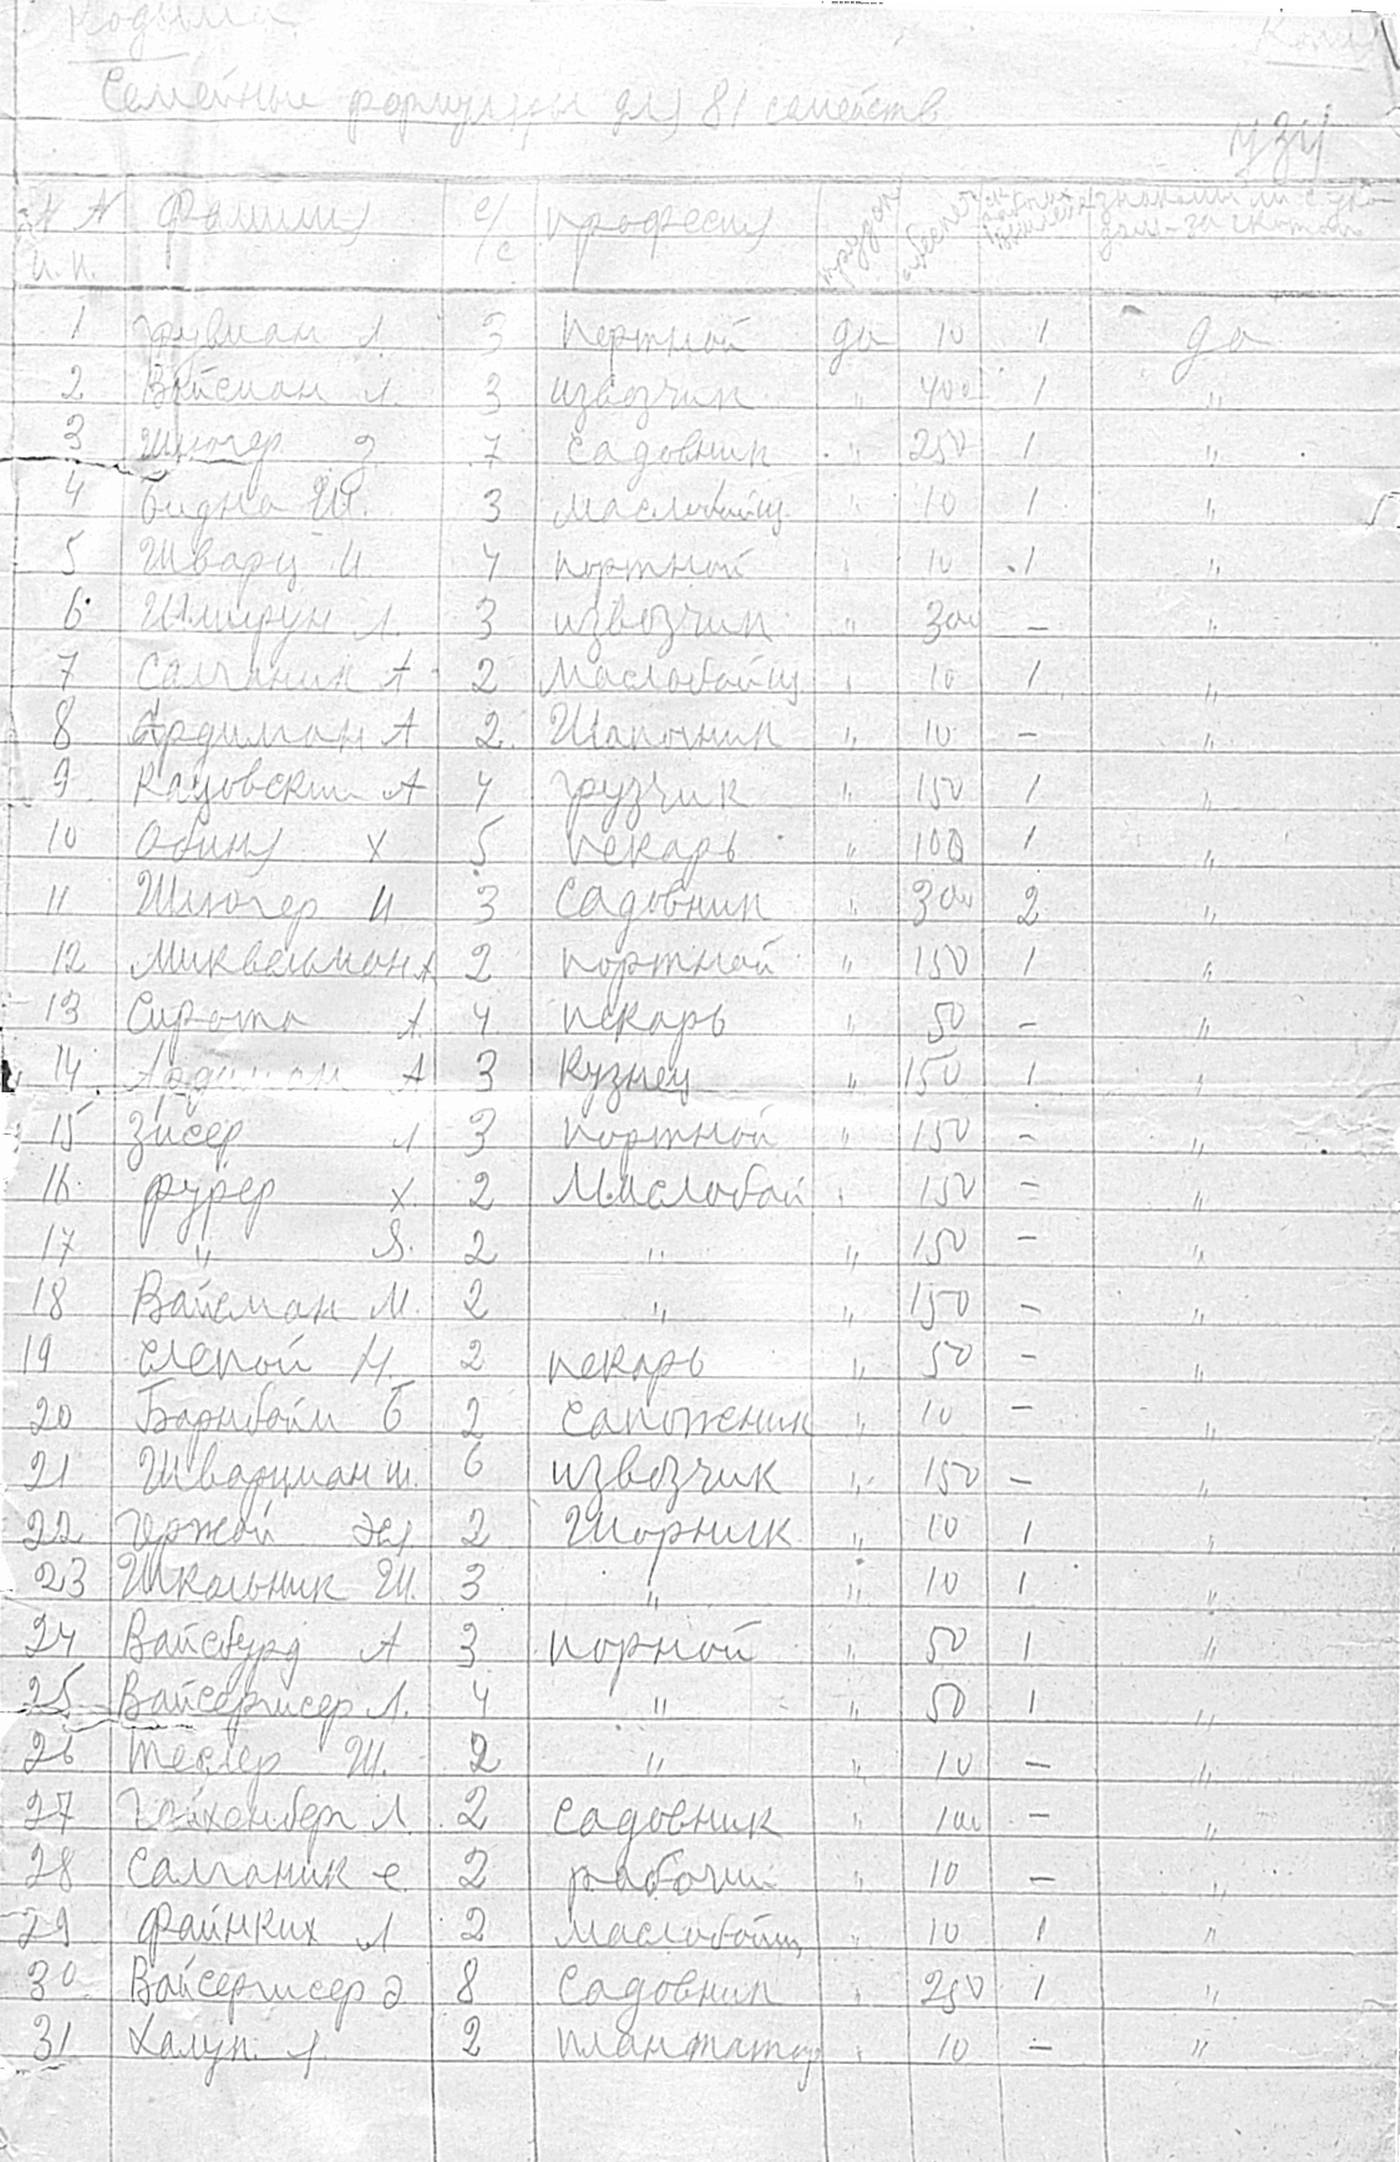 Кодыма
Семейные формуляры для 81 семейств
N N Фамилия с/с професия трудос
п. п.
1 Л. 3 портной да 10 1 да
2 Вайсман Л. 3 извозчик " 400 1 "
3 Шлюгер З. 7 садовник " 250 1 "
4 Бидна Ш. 3 маслобойщ " 10 1 "
5 Шварц И 4 портной " 10 1 "
6 Л. 3 извозчик " 300 – "
7 Салганик А 2 маслобойщ " 10 1 "
8 Ардиман А 2 Шапочник " 10 – "
9 Кацовский А 4 грузчик " 150 1 "
10 Х 5 пекарь " 100 1 "
11 Шлюгер И 3 садовник " 300 2 "
12 А 2 портной " 150 1 "
13 Сирота А. 4 пекарь " 50 – "
14 Ардиман А 3 Кузнец " 150 1 "
15 Зисер Л 3 портной " 150 – "
16 фурер Х. 2 Маслобой " 150 – "
17 " Я. 2 " " 150 – "
18 Вайсман М. 2 " " 150 – "
19 слепой М. 2 пекарь " 50 – "
20 Барнбойм Б 2 сапожник " 10 – "
21 Шварцман Ш. 6 извозчик " 150 – "
22 2 Шорник " 10 1 "
23 Школьник Ш. 3 " " 10 1 "
24 Вайсбурд А 3 порной " 50 1 "
25 Вайсергисер Л. 4 " " 50 1 "
26 теслер Ш. 2 " " 10 – "
27 Гойхенберг Л 2 садовник " 100 – "
28 Салганик е. 2 рабочий " 10 – "
29 Файнких Л 2 маслобойщ " 10 1 "
30 Вайсергисер Э 8 садовник " 250 1 "
31 Халуп. Л. 2 плантатор " 10 – "